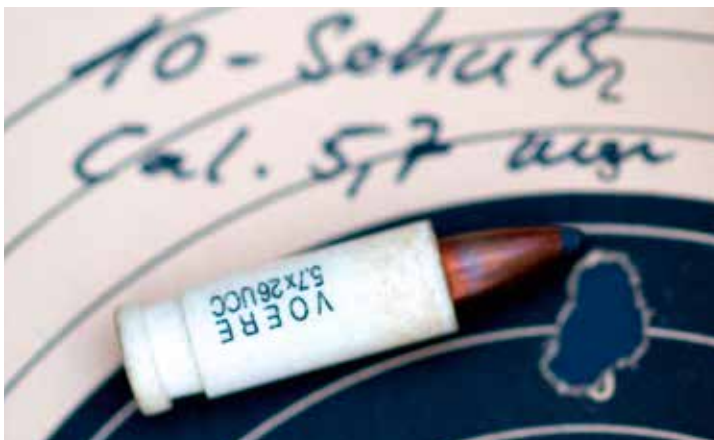 10-Schuß
Cal. 5,7
VOERE
5.7x26UCC